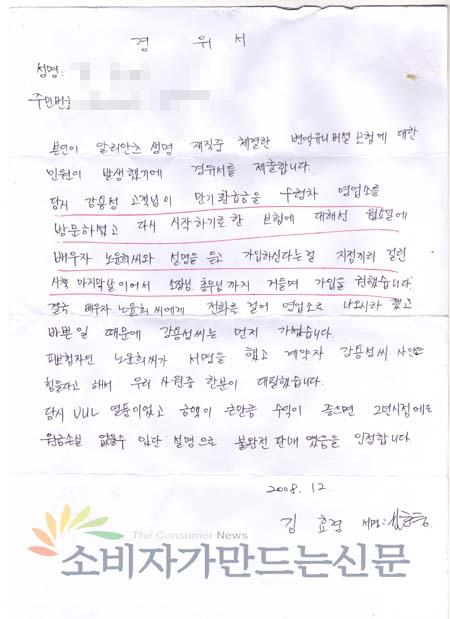 경 위 서
성명:
주민번:
본인이 알리안츠 생명 재직중 체결한 변액유니버설 보험에 대한
민원이 발생했기에 경위서를 제출합니다.
당시 강용성 고객님이 만기환급금을 수령차 영업소를
방문하셨고 다시 시작하기로한 보험에 대해선 월요일에
배우자 노윤희씨와 설명을 듣고 가입하신다는걸 지점끼리 걸린
시책 마지막날이어서 소장님 총무님까지 거들며 가입을 권했습니다.
결국 배우자 노윤희씨에게 전화를 걸어 영업소로 나오시라 했고
바쁜일 때문에 강용성씨는 먼저 가셨습니다.
피보험자인 노윤희씨가 서명을 했고 계약자 강용성씨 사인은
힘들다고 해서 우리 사원중 한분이 대필했습니다.
당시 VUL 열풍이었고 금액이 큰만큼 수익이 좋으면 2년시점에도
원금손실 없을수 있단 설명으로 불완전 판매 였음을 인정합니다.
2008. 12.
김 효경 서명:
The Consumer News
소비자가만드는신문